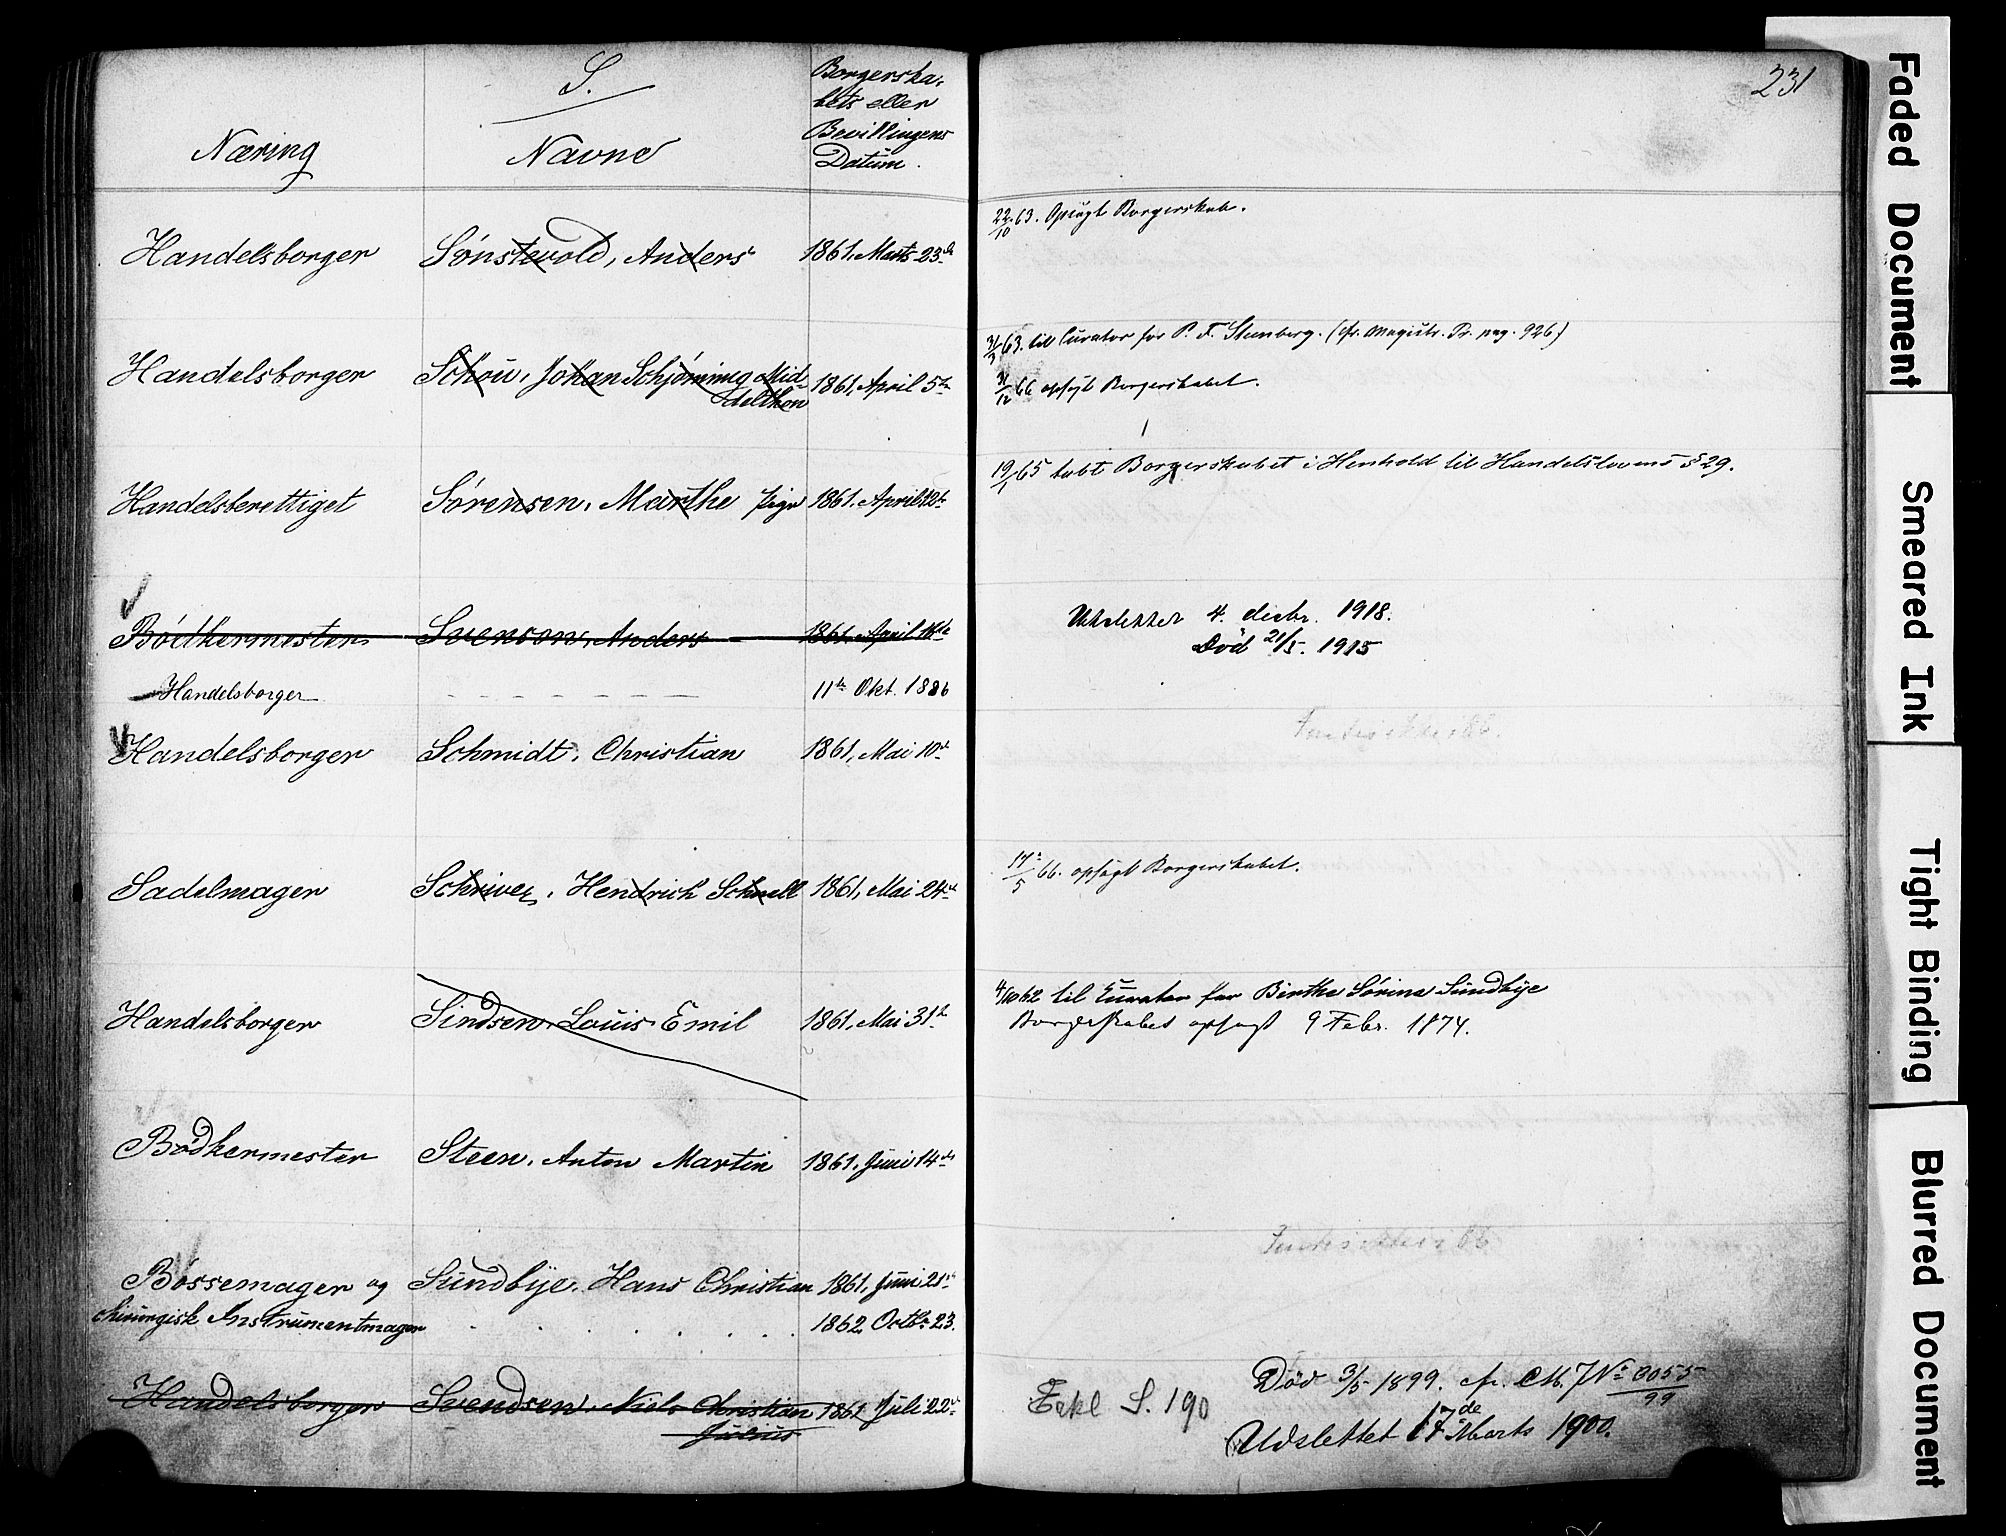 S.
Næring
Navne
Borgerska-
bets eller
Bevillingens
Datum.
231
Handelsborger Sønstevold, Anders 1861, Marts 23de
22/10 63. Opsagt Borgerskab.
Handelsborger Schou, Johan Schjønning Mid-
delthon 1861, April 5te
31/3 63. til Curator for P. T. Stenberg. (cfr. Magistr. Pr. pag. 926)
31/12 66 opsagt Borgerskabet.
Handelsberettiget Sørensen, Marthe pige 1861, April 12te
19/1 65 tabt Borgerskabet i Henhold til Handelslovens § 29.
Bødkermester Svenson, Anders 1861, April
Handelsborger 11te Okt. 1886
Udslettet 4. desbr. 1918.
Død 21/5. 1915
Handelsborger Schmidt, Christian 1861, Mai 10de
Sadelmager Schriver, Hendrich Schnell 1861, Mai 24de
17/5 66. opsagt Borgerskabet.
Handelsborger Sindsen, Louis Emil 1861, Mai 31te
4/10 62 til Curator for Birthe Sørine Sundbye
Borgerskabet opsagt 9 Febr. 1874.
Bødkermester Steen, Anton Martin 1861, Juni 14de
Bøssemager og Sundbye, Hans Christian 1861, Juni 21de
chirurgisk Instrumentmager 1862 Octbr 23.
Handelsborger Svendsen, Niels Christian
Julius 1861, Juli 22de
Død 3/5 1899. cfr. CM. J No 3055/99
S. 190
Udslettet 17de Marts 1900.
Faded Document
Smeared Ink
Tight Binding
Blurred Document